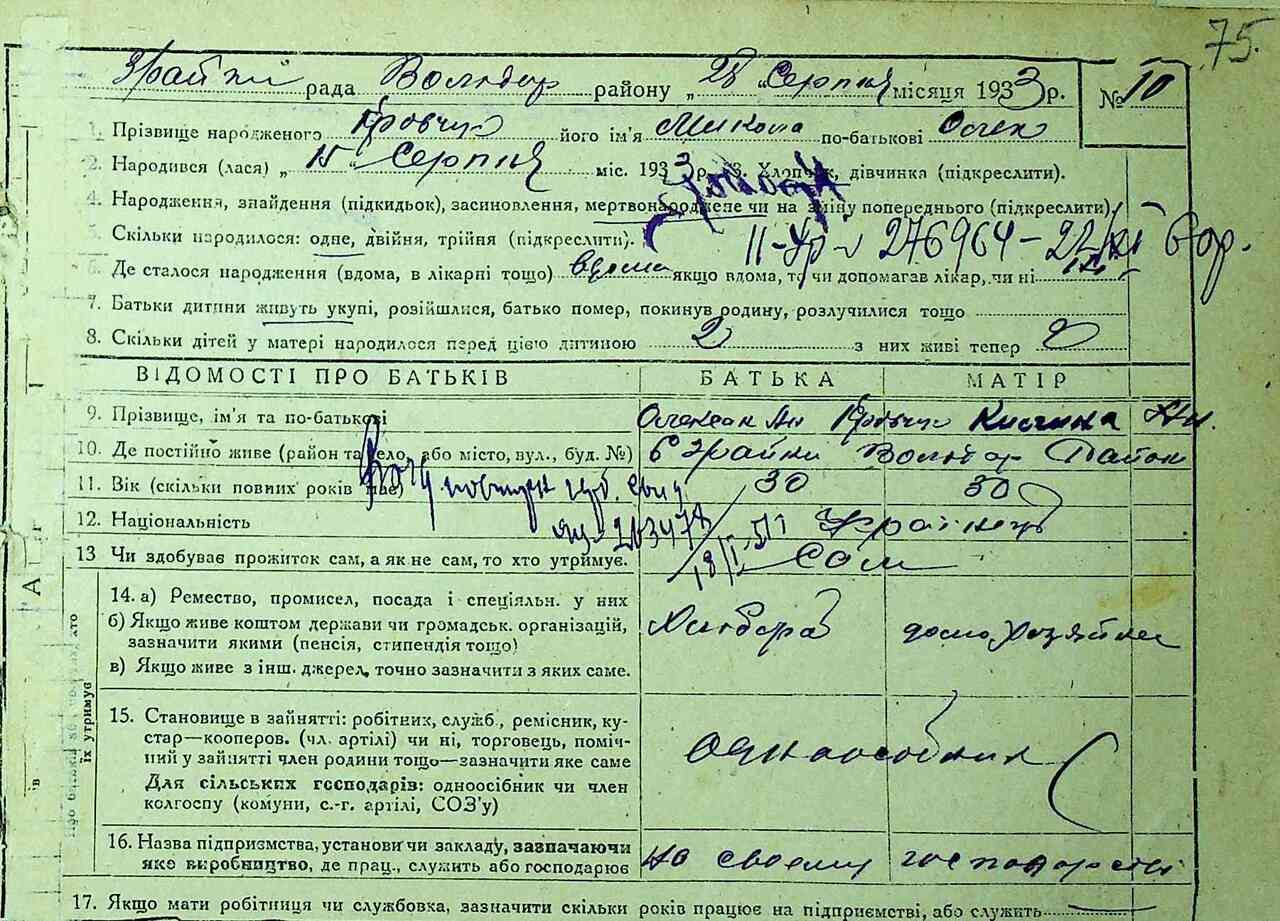 75.
Зрайки рада Володар району „28" Серпня місяця 1933 р. № 10
1. Прізвище народженого Кровчук його ім'я Микола по-батькові Олек
2. Народився (лася) „15" Серпня міс. 1933 р. 3. Хлопчик, дівчинка (підкреслити).
4. Народження, знайдення (підкидьок), засиновлення, мертвонароджене чи на зміну попереднього (підкреслити)
5. Скільки народилося: одне, двійня, трійня (підкреслити).
276964 – 22/XI 60р.
6. Де сталося народження (вдома, в лікарпі тощо) вдома якщо вдома, то чи допомагав лікар, чи ні
7. Батьки дитини живуть укупі, розійшлися, батько помер, покинув родину, розлучилися тощо
8. Скільки дітей у матері народилося перед цією дитиною 2 з них живі тепер 2
ВІДОМОСТІ ПРО БАТЬКІВ БАТЬКА МАТІР
9. Прізвище, ім'я та по-батькові Кровчук
10. Де постійно живе (район та село, або місто, вул., буд. №) Зрайки Володар Район
11. Вік (скільки повних років має) 30 30
12. Національність
18/I 51
13 Чи здобуває прожиток сам, а як не сам, то хто утримує. Сам
14. а) Ремество, промисел, посада і спеціяльн. у них
б) Якщо живе коштом держави чи громадськ. організацій, зазначити якими (пенсія, стипендія тощо)
в) Якщо живе з інш. джерел, точно зазначити з яких саме.
Хлібороб домохозяйка
15. Становище в зайнятті: робітник, служб., ремісник, ку-
стар—кооперов. (чл. артілі) чи ні, торговець, поміч-
ний у зайнятті член родини тощо—зазначити яке саме
Для сільських господарів: одноосібник чи член
колгоспу (комуни, с.-г. артілі, СОЗ'у)
одноособник
16. Назва підприємства, установи чи закладу, зазначаючи
яке виробництво, де прац., служить або господарює на своему господарстві
17. Якщо мати робітниця чи службовка, зазначити скільки років працює на підприємстві, або служить
їх утримує